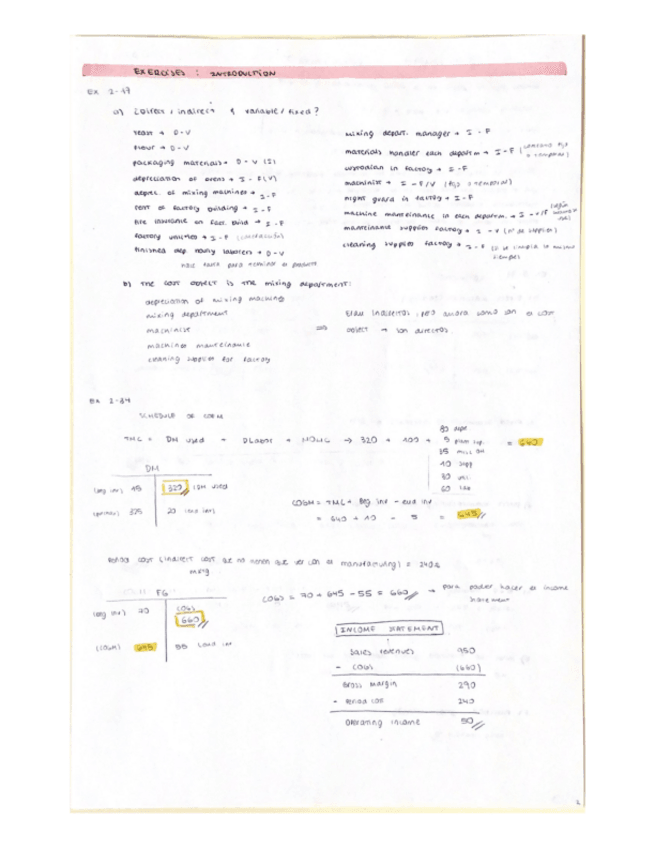 EXERCISES : INTRODUCTION
EX 2-17
a) ¿Direct / indirect & variable / fixed?
Yeast → D - V
Flour → D - V
packaging materials → D - V (I)
depreciation of ovens → I - F (V)
deprec. of mixing machines → I - F
rent of factory building → I - F
fire insurance on fact. build → I - F
factory utilities → I - F
finished dep. hourly laborers → D - V
mixing depart. manager → I - F
materials handler each departm → I - F
custodian in factory → I - F
machinist → I - F/V (fijo o temporal)
night guard in factory → I - F
machine maintenance in each departm. → I - V/F
maintenance supplies factory → I - V (nº de supplies)
cleaning supplies factory → I - F
b) The cost object is the mixing department:
depreciation of mixing machine
mixing department
machinist
machines maintenance
cleaning supplies for factory
Eran indirectos, pero ahora como son el cost
object → son directos.
EX 2-34
SCHEDULE OF COGM
TMC = DM used + DLabor + MOHC → 320 + 100 +
80 depr
5 plant sup.
35 misc. OH
10 supp
30
60
= 640
DM
(beg inv) 15
320 (DM used
325
20 (end inv)
COGM = TMC + Beg inv - end inv
= 640 + 10 - 5 = 645
Period cost (indirect cost que no tienen que ver con el manufacturing) = 240
FG
(beg inv) 70
COGS
660
(COGM) 645
55 (end inv
COGS = 70 + 645 - 55 = 660 → para poder hacer el income
statement
INCOME STATEMENT
Sales revenues 950
- COGS (660)
Gross margin 290
- Period cost 240
Operating income 50
2